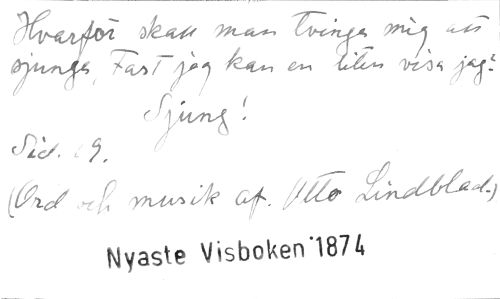 Hvarför skall man tvinga mig att
sjunga, Fast jag kan en liten visa jag?
Sjung!
Sid. 9.
(Ord och musik af. Otto Lindblad.)
Nyaste Visboken 1874